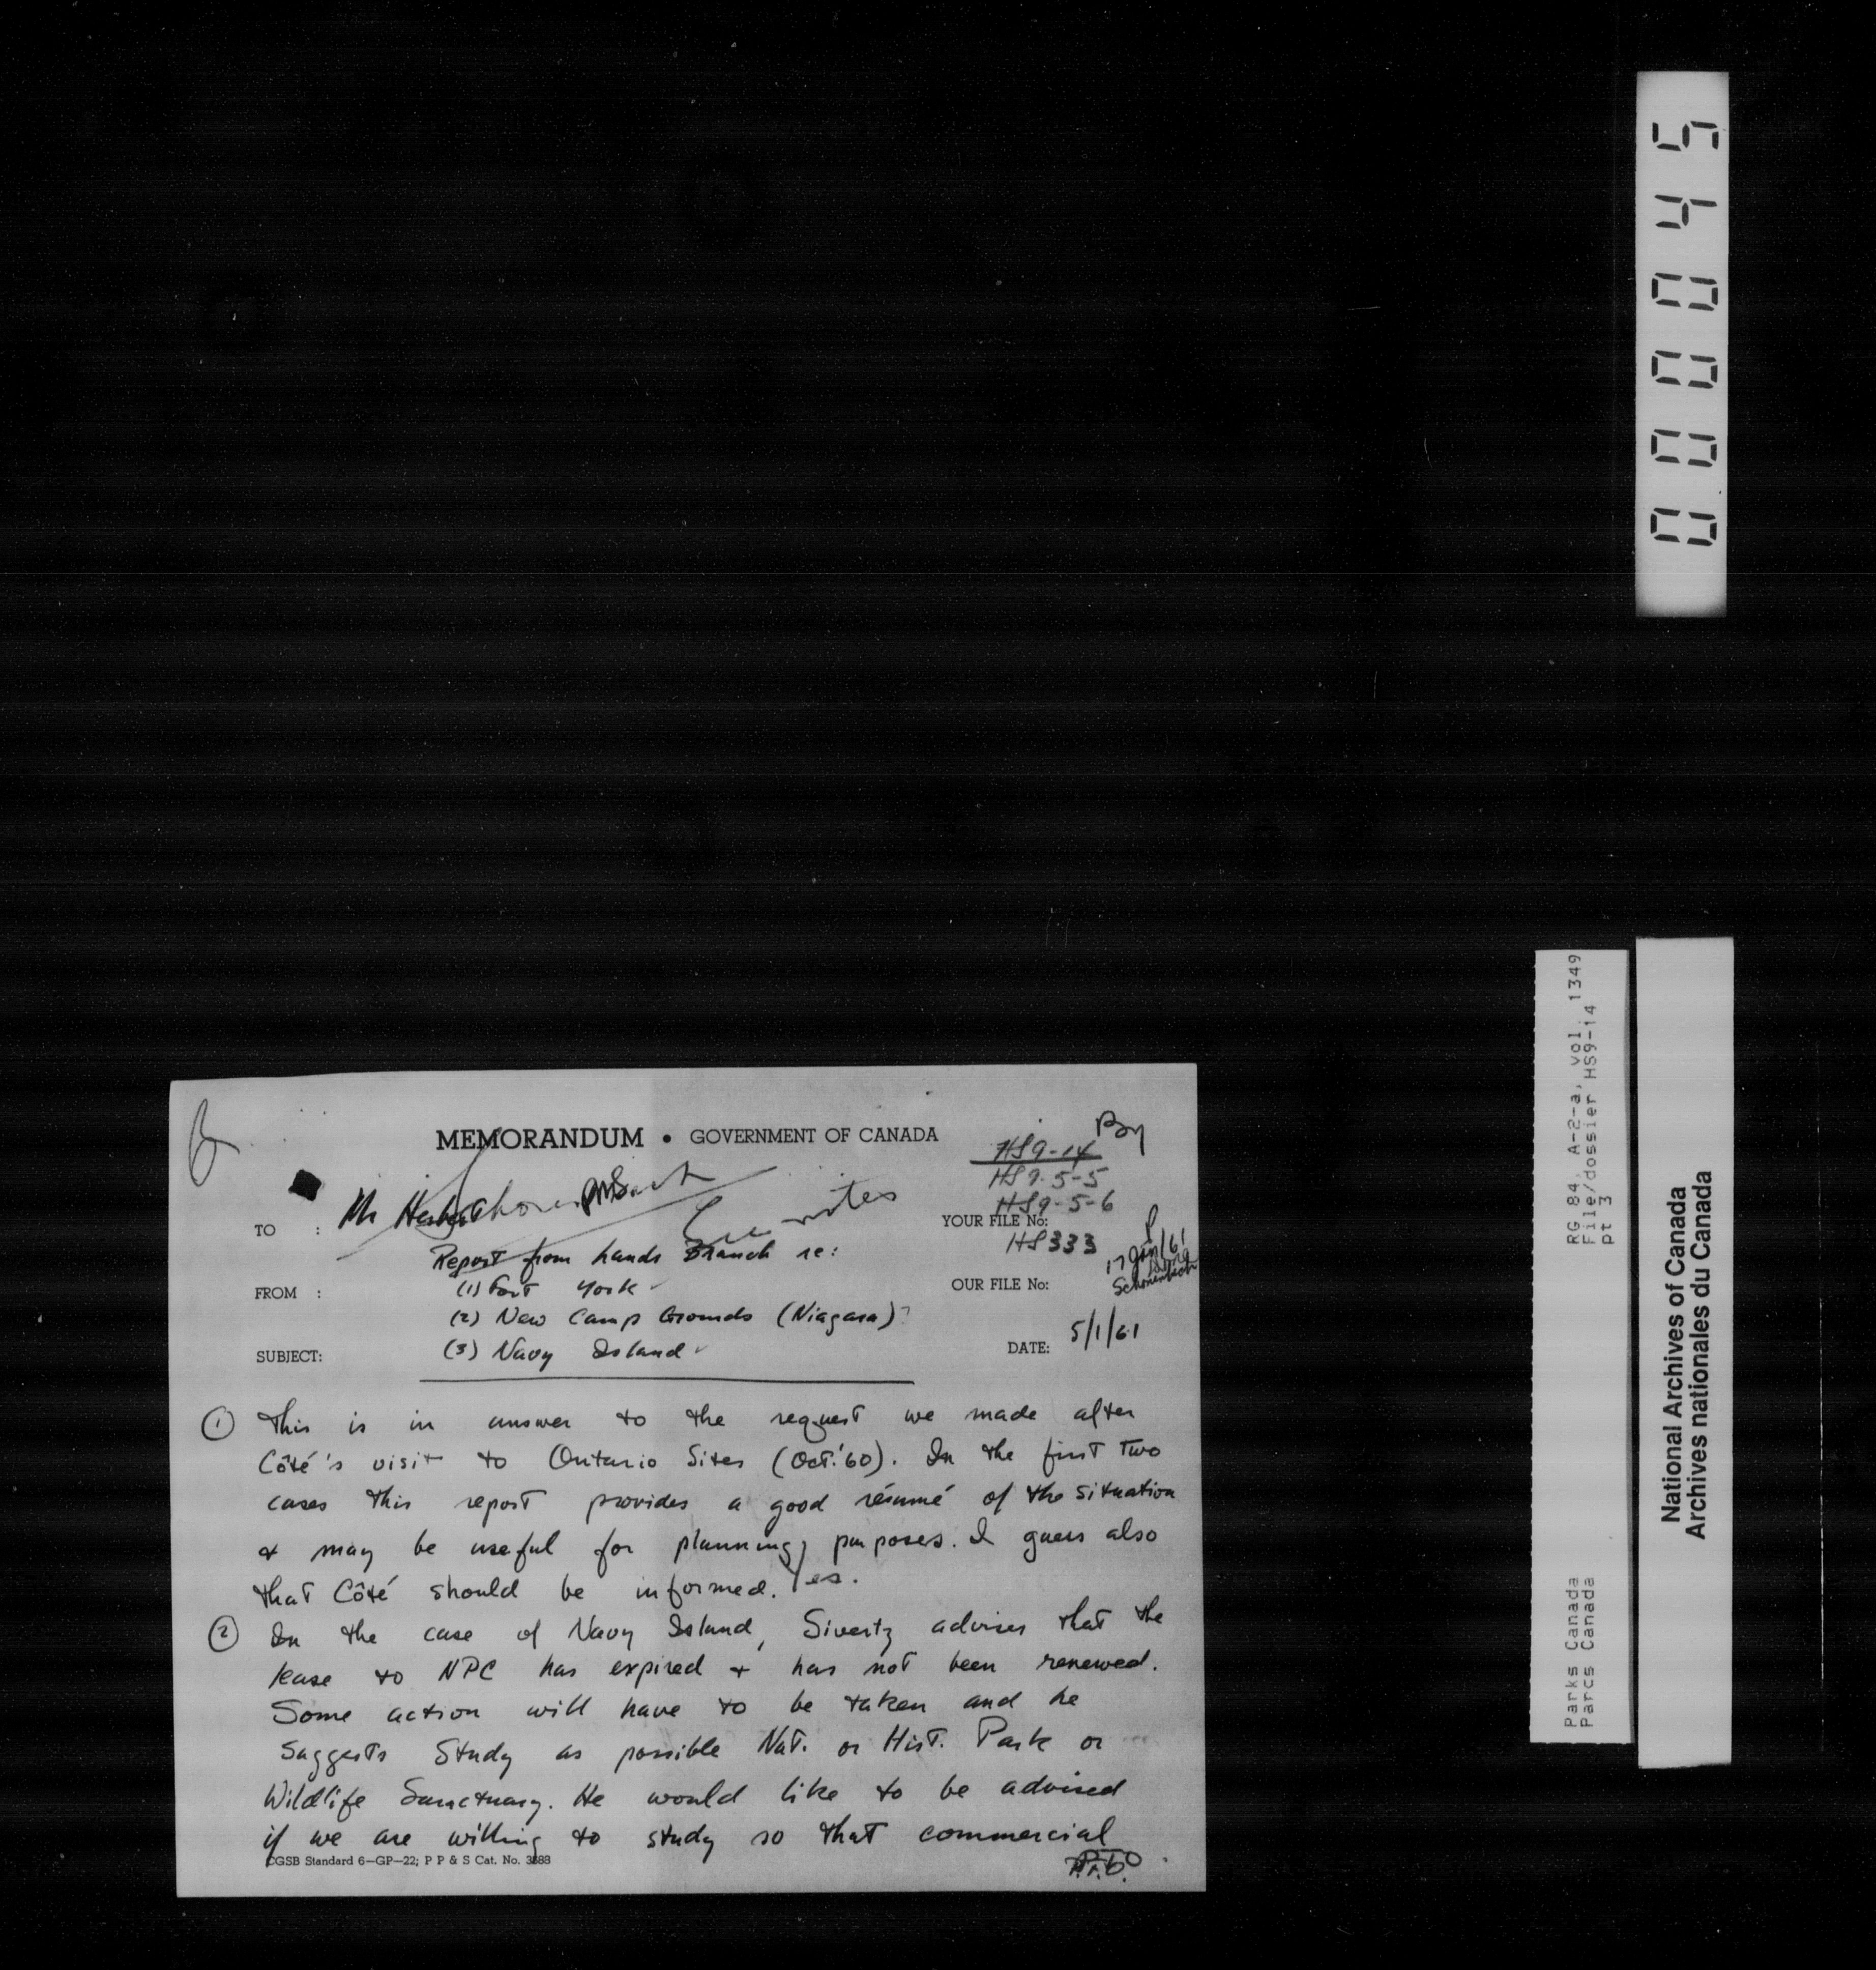 000045
By
MEMORANDUM • GOVERNMENT OF CANADA
HS9-14
HS9-5-5
HS9-5-6
TO : Mr
YOUR FILE No:
HS333
17 Jan/61
Report from Lands Branch re:
FROM :
(1) Fort York
OUR FILE No:
(2) New Camp Grounds (Niagara)
SUBJECT:
(3) Navy Island
DATE: 5/1/61
① This is in answer to the request we made after
Côté's visit to Ontario Sites (Oct.'60). In the first two
cases this report provides a good résumé of the situation
& may be useful for planning purposes. I guess also
that Côté should be informed. Yes.
② In the case of Navy Island, Sivertz advises that the
lease to NPC has expired & has not been renewed.
Some action will have to be taken and he
suggests study as possible Nat. or Hist. Park or
Wildlife Sanctuary. He would like to be advised
if we are willing to study so that commercial
CGSB Standard 6-GP-22; P P & S Cat. No. 3583
RG 84, A-2-a, vol. 1349
File/dossier HS9-14
pt 3
Parks Canada
Parcs Canada
National Archives of Canada
Archives nationales du Canada